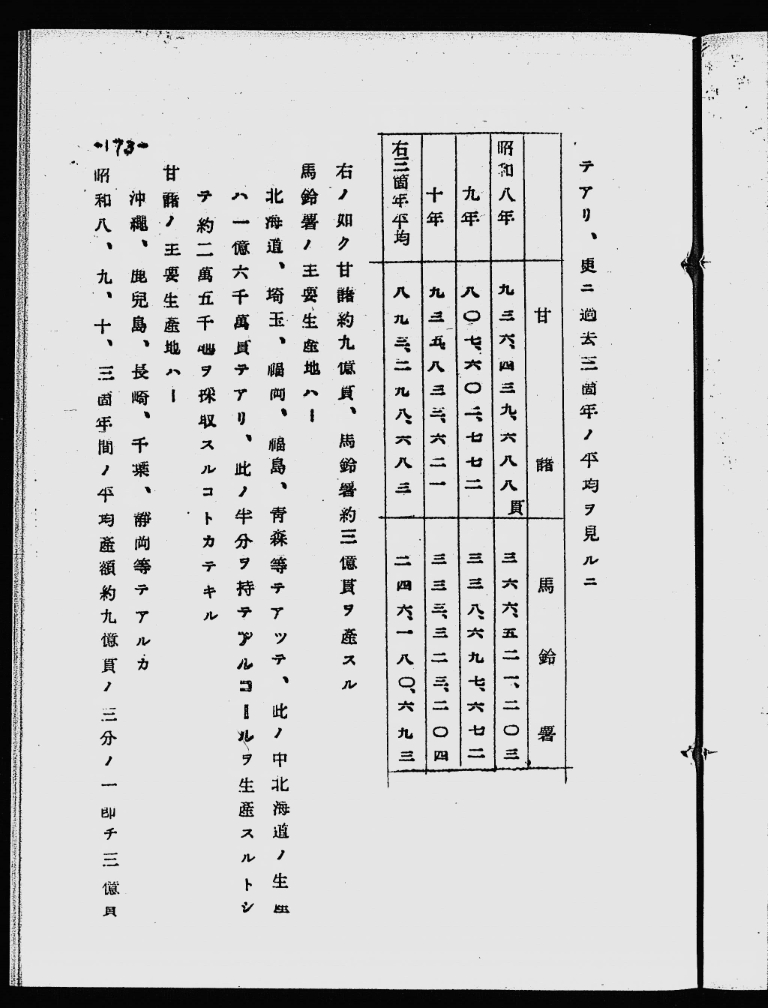 テアリ、更ニ過去三箇年ノ平均ヲ見ルニ
甘藷 馬鈴薯
昭和八年 九三六、四三九、六八八貫 三六六、五二一、二〇三
九年 八〇七、六〇二、七七二 三三八、六九七、六七二
十年 九三五、八三三、六二一 三三三、三二三、二〇四
右三箇年平均 八九三、二九八、六八三 二四六、一八〇、六九三
右ノ如ク甘藷約九億貫、馬鈴薯約三億貫ヲ産スル
馬鈴薯ノ主要生産地ハー
北海道、埼玉、福岡、福島、青森等テアツテ、此ノ中北海道ノ生産
ハ一億六千萬貫テアリ、此ノ半分ヲ持テアルコールヲ生産スルトシ
テ約二萬五千 ヲ採取スルコトカテキル
甘藷ノ主要生産地ハー
沖繩、鹿兒島、長崎、千葉、靜岡等テアルカ
昭和八、九、十、三箇年間ノ平均産額約九億貫ノ三分ノ一即チ三億貫
-173-